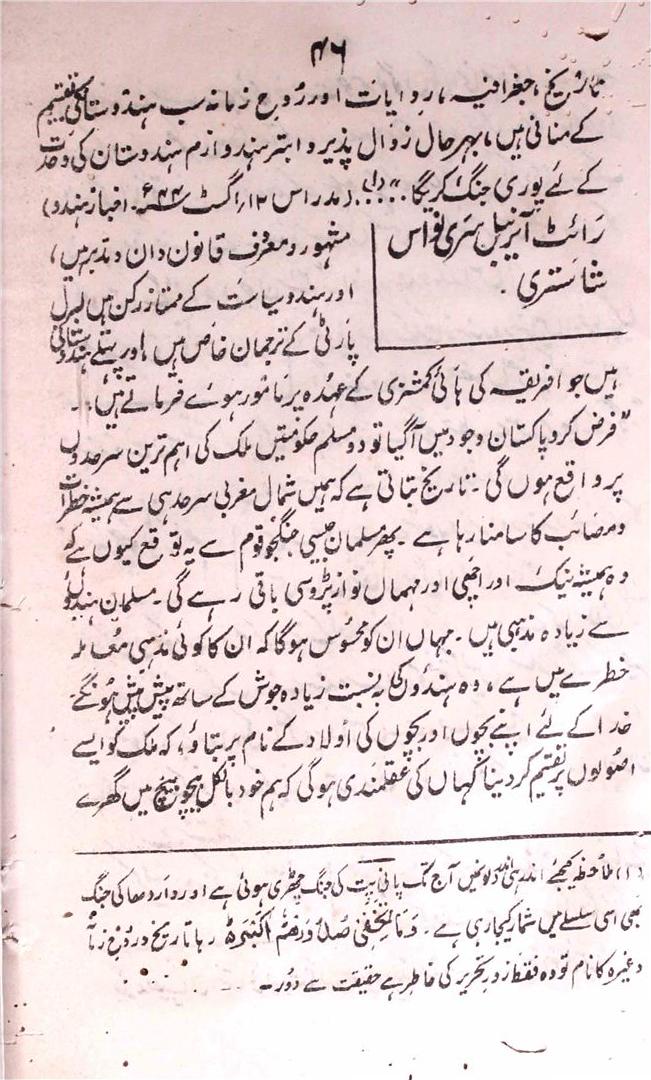 ۴۶
تاریخ، جغرافیہ، روایات اور رُوحِ زمانہ سب ہندوستان کی تقسیم
کے منافی ہیں، بہر حال زوال پذیر و ابتر ہندو ازم ہندوستان کی وحدت
کے لئے پوری جنگ کریگا"..(۱)..(مدراس ۱۳/اگست ۴۴ء۔ اخبار ہندو)
رائٹ آنریبل سری نواس
شاستری۔
مشہور و معروف قانون دان و مدبر ہیں،
اور ہندو سیاست کے ممتاز رکن ہیں لبرل
پارٹی کے ترجمان خاص ہیں اور پہلے ہندوستانی
ہیں جو افریقہ کی ہائی کمشنری کے عہدہ پر مامور ہوئے فرماتے ہیں..
"فرض کرو پاکستان وجود میں آگیا تو دو مسلم حکومتیں ملک کی اہم ترین سرحدوں
پر واقع ہوں گی۔ تاریخ بتاتی ہے کہ ہمیں شمال مغربی سرحد ہی سے ہمیشہ خطرات
و مصائب کا سامنا رہا ہے۔ پھر مسلمان جیسی جنگجو قوم سے یہ توقع کیوں ہے کہ
وہ ہمیشہ نیک اور اچھی اور مہماں نواز پڑوسی باقی رہے گی۔ مسلمان ہندوؤں
سے زیادہ مذہبی ہیں۔ جہاں ان کو محسوس ہوگا کہ ان کا کوئی مذہبی معاملہ
خطرے میں ہے، وہ ہندوں کی بہ نسبت زیادہ جوش کے ساتھ پیش پیش ہونگے
خدا کے لئے اپنے بچوں اور بچوں کی اولاد کے نام پر بتاؤ، کہ ملک کو ایسے
اصولوں پر تقسیم کر دینا کہاں کی عقلمندی ہوگی کہ ہم خود بالکل بیچوں بیچ میں گھرے
(۱) ملاحظہ کیجئے اندر ہی اندر آج تک پانی پت کی جنگ چھڑی ہوئی ہے اور واردھا کی جنگ
بھی اسی سلسلے میں شمار کیجا رہی ہے۔ وَمَا تُخْفِیْ صُدُوْرُهُمْ اَکْبَرُ رہا تاریخ و روح زمانہ
وغیرہ کا نام تو وہ فقط زورِ تحریر کی خاطر ہے حقیقت سے دُور۔